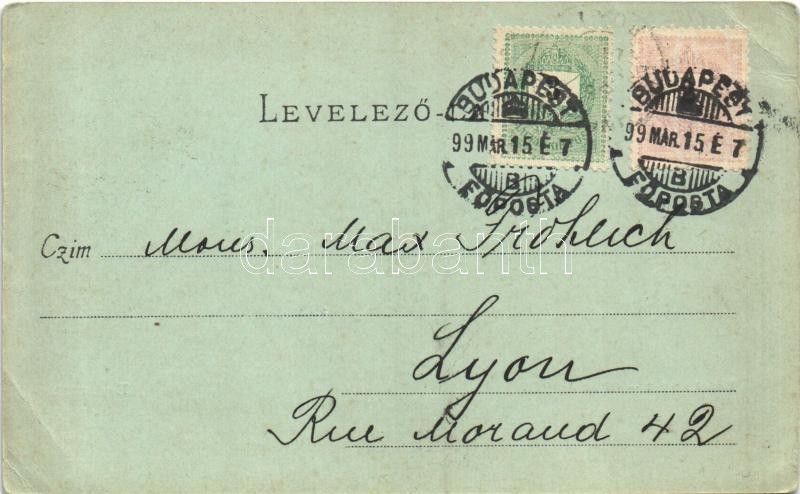 LEVELEZŐ-
BUDAPEST
99 MÁR. 15 É 7
B
FŐPOSTA
BUDAPEST
99 MÁR. 15 É 7
B
FŐPOSTA
Czim Mons. Max Fröhlich
darabanth
Lyon
Rue Morand 42